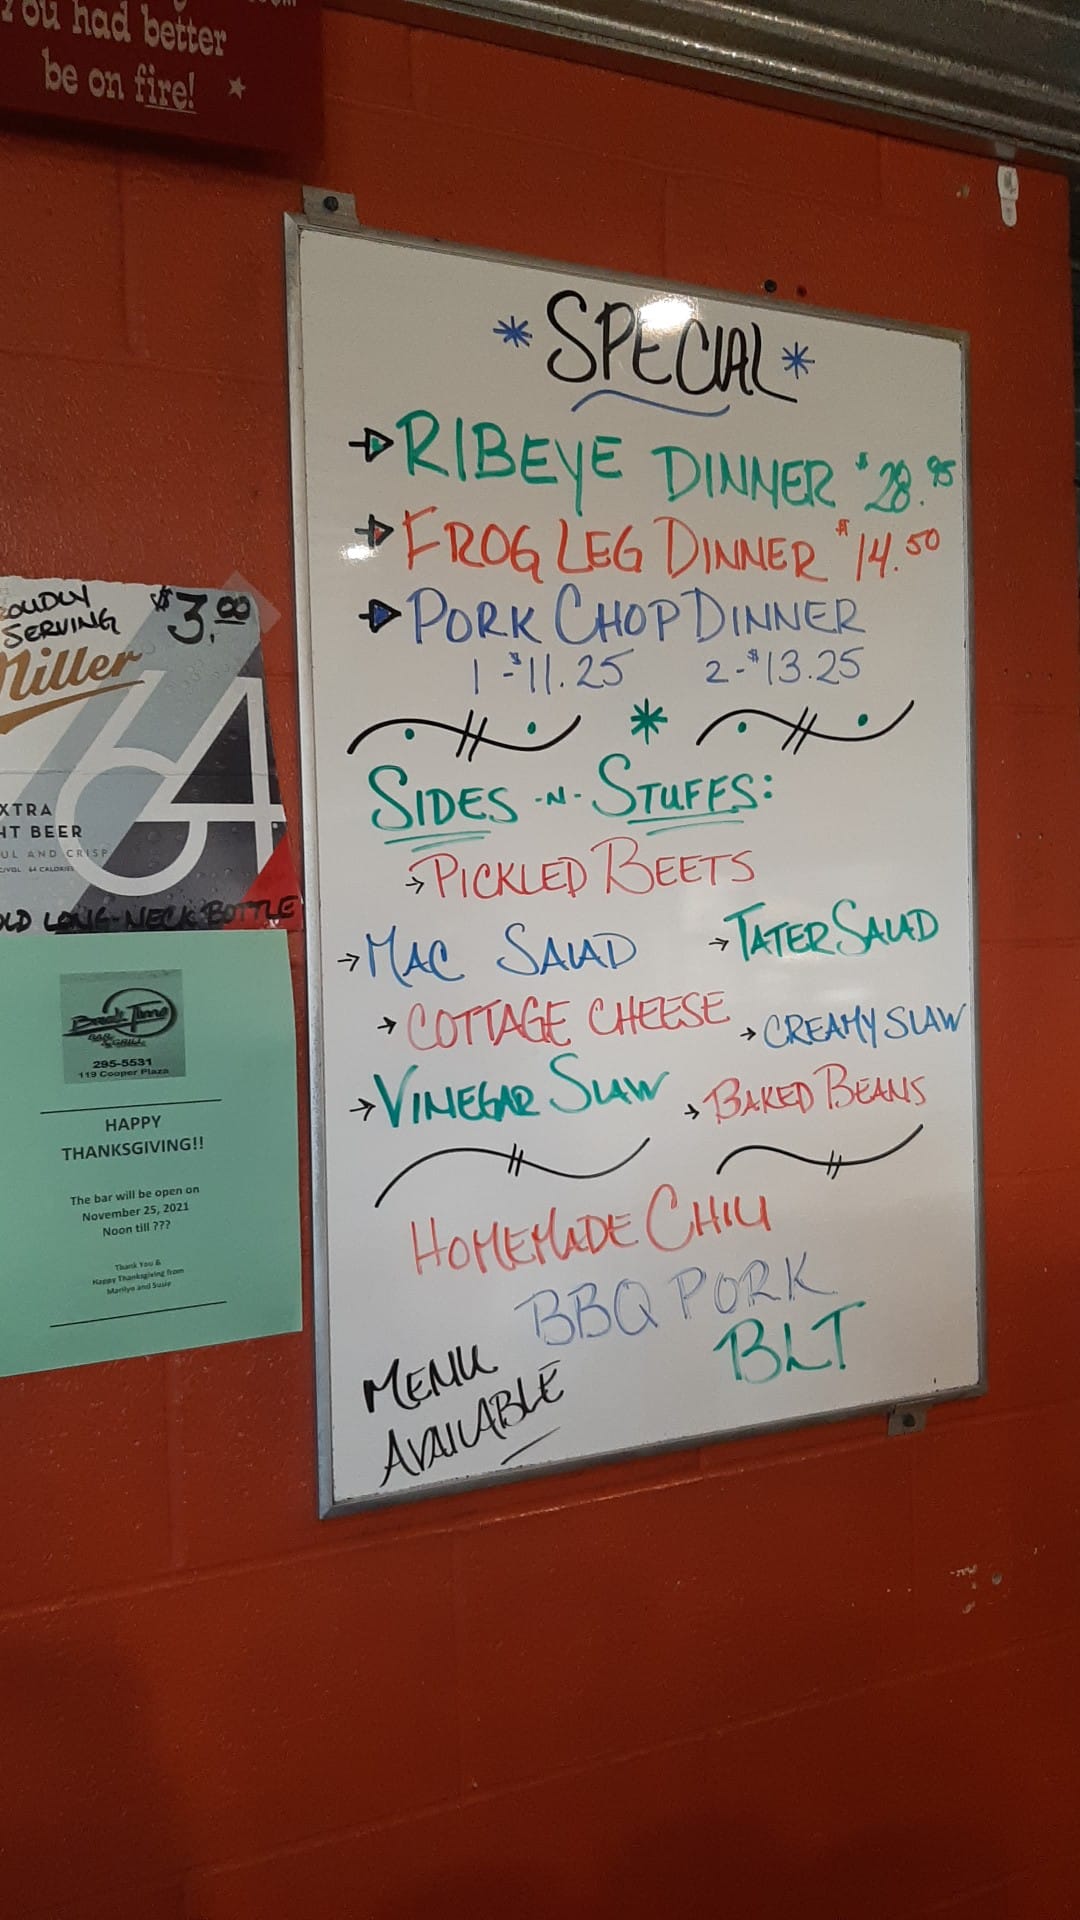 You had better
be on fire!
* SPECIAL *
RIBEYE DINNER $28.95
FROG LEG DINNER $14.50
PORK CHOP DINNER
1-$11.25 2-$13.25
SIDES -N- STUFFS:
→ PICKLED BEETS
→ MAC SALAD → TATER SALAD
→ COTTAGE CHEESE → CREAMY SLAW
→ VINEGAR SLAW → BAKED BEANS
HOMEMADE CHILI
BBQ PORK
BLT
MENU
AVAILABLE
OUDLY
SERVING
$3.00
Miller
64
XTRA
HT BEER
UL AND CRISP
64 CALORIES
OLD LONG-NECK BOTTLE
Break Time
BAR & GRILL
295-5531
119 Cooper Plaza
HAPPY
THANKSGIVING!!
The bar will be open on
November 25, 2021
Noon till ???
Thank You &
Happy Thanksgiving from
Marilyn and Susie